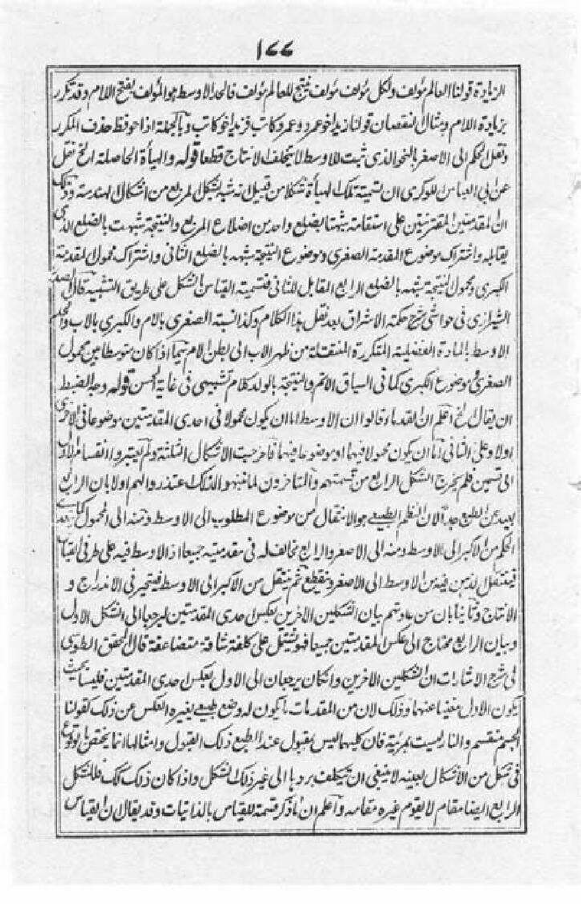 ١٧٧
الزيادة قولنا العالم مؤلف ولكل مؤلف مؤلف ينتج للعالم مؤلف فالحد الاوسط هو المؤلف بفتح اللام وقد تكرر
بزيادة اللام ومثال النقصان قولنا زيد اخو عمرو وعمرو كاتب فزيد اخو كاتب وبالجملة اذا حوفظ حذف المكرر
ونقل الحكم الى الاصغر بالنحو الذى ثبت للاوسط لا يتخلف الانتاج قطعا قوله والهيأة الحاصلة الخ نقل
عن ابى العباس اللوكرى ان تسمية تلك الهيأة شكلا من قبيل انه شبه بشكل مربع من اشكال الهندسة وذلك
ان المقدمتين المقترنتين على استقامة شبهتا بضلع واحد من اضلاع المربع والنتيجة شبهت بالضلع الذى
يقابله واشتراك موضوع المقدمة الصغرى وموضوع النتيجة شبه بالضلع الثانى واشتراك محمول المقدمة
الكبرى ومحمول النتيجة شبه بالضلع الرابع المقابل للثانى فتسمية القياس بالشكل على طريق التشبيه قال الصدر
الشيرازى فى حواشى شرح حكمة الاشراق بعد نقل هذا الكلام وكذا نسبة الصغرى بالام والكبرى بالاب والحد
الاوسط بالمادة الفضلية المتكررة المنتقلة من ظهر الاب الى بطن الام سيما اذا كان متوسطا بين محمول
الصغرى وموضوع الكبرى كما فى السياق الاتم والنتيجة بالولد كلام تشبيهى فى غاية الحسن قوله وجه الضبط
ان يقال الخ اعلم ان القدماء قالوا ان الاوسط اما ان يكون محمولا فى احدى المقدمتين موضوعا فى الاخرى
اولا وعلى الثانى اما ان يكون محمولا فيهما او موضوعا فيهما فاخرجت الاشكال الثلثة ولم يعتبروا انقسام الاول
الى قسمين فلم يخرج الشكل الرابع من قسمتهم والمتاخرون لما تنبهوا لذلك اعتذروا لهم اولا بان الرابع
بعيد عن الطبع جدا لان النظم الطبيعى هو الانتقال من موضوع المطلوب الى الاوسط ومنه الى المحمول
الحكم من الاكبر الى الاوسط ومنه الى الاصغر والرابع مخالف له فى مقدمتيه جميعا اذ الاوسط فيه على طرفى القياس
فينتقل الذهن فيه من الاوسط الى الاصغر وتنقطع ثم ينتقل من الاكبر الى الاوسط فيتحير فى الاندراج و
الانتاج وثانيا بان من عادتهم بيان الشكلين الاخيرين بعكس احدى المقدمتين ليرجعا الى الشكل الاول
وبيان الرابع محتاج الى عكس المقدمتين جميعا فهو يشتمل على كلفة شاقة متضاعفة قال المحقق الطوسى
فى شرح الاشارات ان الشكلين الاخيرين وان كان يرجعان الى الاول بعكس احدى المقدمتين فليسا بحيث
يكون الاول مغنيا عنهما وذلك لان من المقدمات ما يكون له وضع طبيعى يغيره العكس عن ذلك كقولنا
الجسم منقسم والنار ليست بمرئية فان عكسيهما ليس بمقبول عند الطبع ذلك القبول وامثالها انما يختص بالوقوع
فى شكل من الاشكال بعينه لا ينبغى ان يتكلف بردها الى غير ذلك الشكل واذا كان ذلك كذلك فللشكل
الرابع ايضا مقام لا يقوم غيره مقامه واعلم ان ما ذكر قسمة للقياس بالذاتيات وقد يقال ان القياس